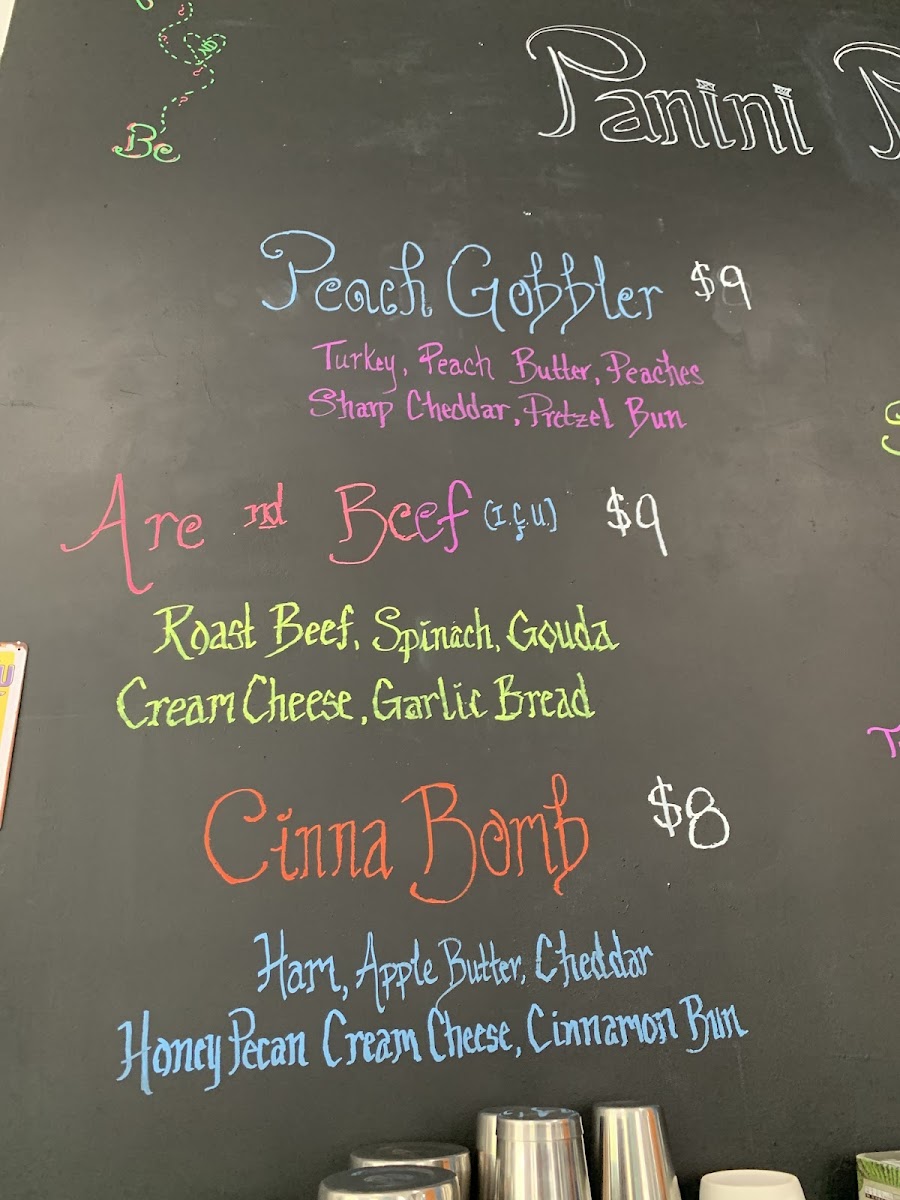 Be
Panini
Peach Gobbler $9
Turkey, Peach Butter, Peaches
Sharp Cheddar, Pretzel Bun
Are nd Beef (I.G.U.) $9
Roast Beef, Spinach, Gouda
Cream Cheese, Garlic Bread
Cinna Bomb $8
Ham, Apple Butter, Cheddar
Honey Pecan Cream Cheese, Cinnamon Bun